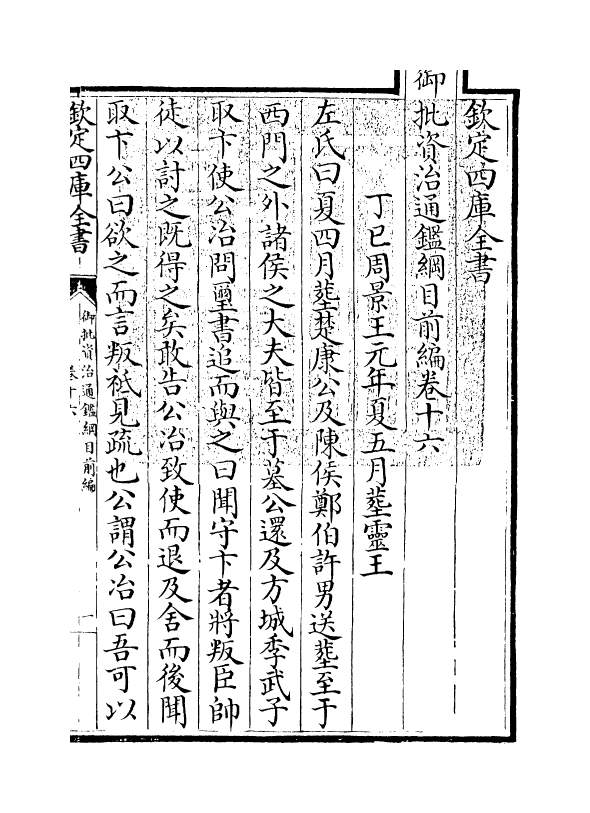 欽定四庫全書
御批資治通鑑綱目前編卷十六
丁巳周景王元年夏五月塟靈王
左氏曰夏四月塟楚康公及陳侯鄭伯許男送塟至于
西門之外諸侯之大夫皆至于墓公還及方城季武子
取卞使公冶問璽書追而與之曰聞守卞者將叛臣帥
徒以討之既得之矣敢告公冶致使而退及舍而後聞
取卞公曰欲之而言叛祇見疏也公謂公冶曰吾可以
欽定四庫全書
御批資治通鑑綱目前編
卷十六
一